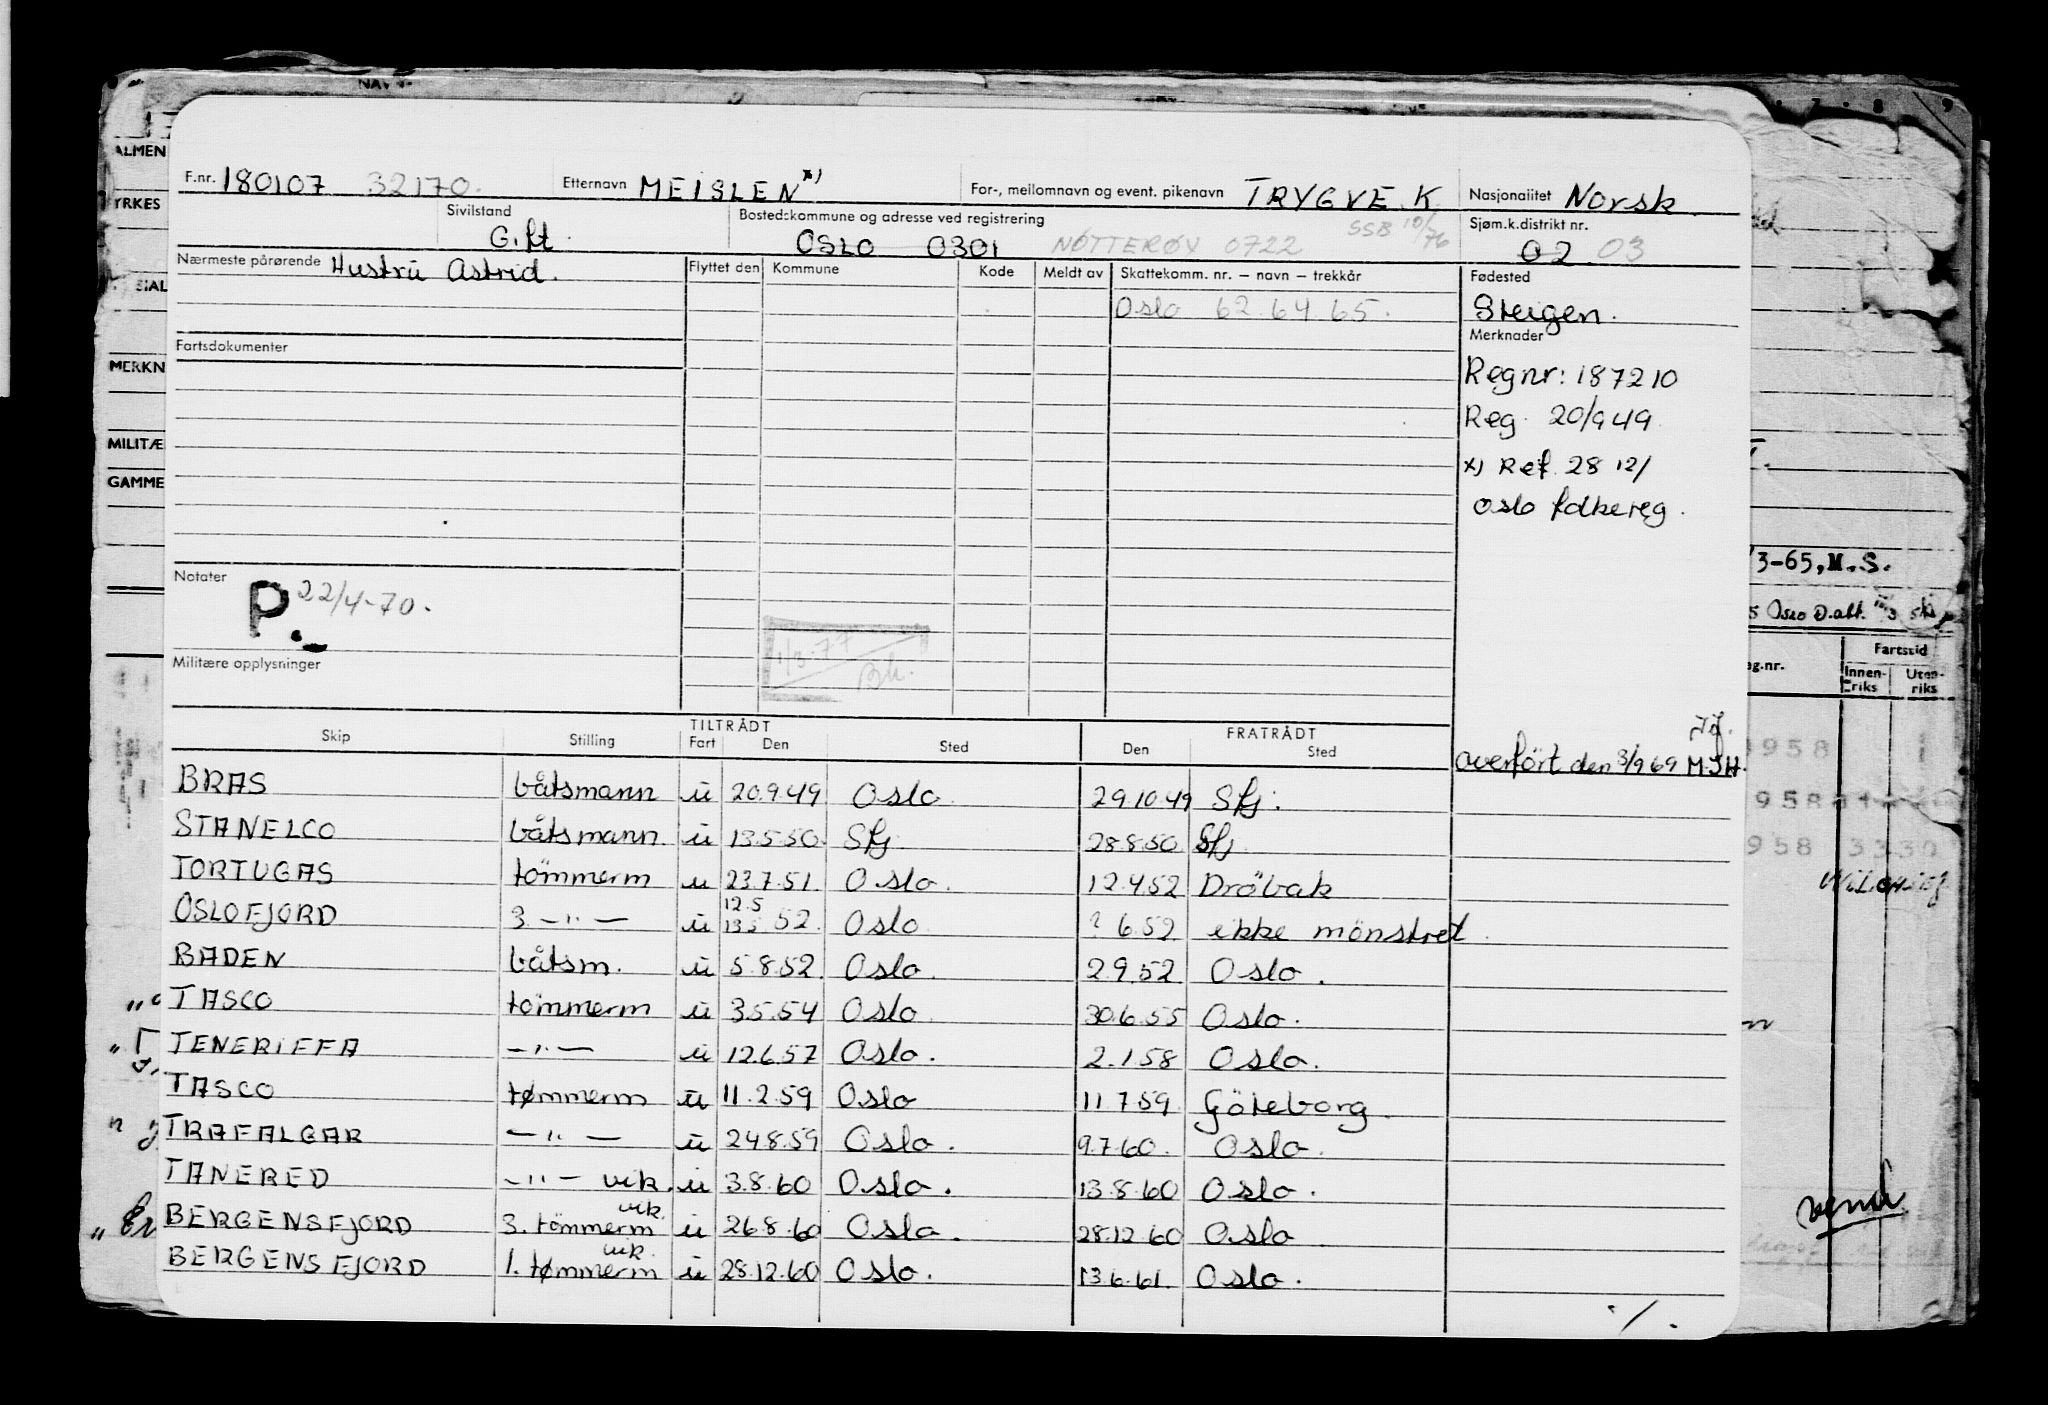 F.nr. 180107 32170. Etternavn MEISLEN x) For-, mellomnavn og event. pikenavn TRYGVE K. Nasjonalitet Norsk
Sivilstand Gift Bostedskommune og adresse ved registrering OSLO 0301 NÖTTERÖY 0722 SSB 10/76 Sjøm.k.distrikt nr. 02 03
Nærmeste pårørende Hustru Astrid. Flyttet den Kommune Kode Meldt av Skattekomm. nr. – navn – trekkår Fødested
Oslo 62 64 65. Steigen.
Fartsdokumenter Merknader
Regnr: 187210
Reg. 20/9 49
x) Ref. 28 12/
Oslo folkereg.
Notater
P. 22/4-70.
1/3-77
Bh.
Militære opplysninger
Skip Stilling TILTRÅDT Fart Den Sted FRATRÅDT Den Sted
overfört den 3/9 69 M.J.H.
BRAS båtsmann u 20.9.49 Oslo 29.10.49 Sfj.
STANELCO båtsmann u 13.5.50 Sfj. 28.8.50 Sfj
TORTUGAS tömmerm u 23.7.51 Oslo. 12.4.52 Dröbak
OSLOFJORD 3. –"– u 12.5 13.5 52 Oslo ? 6.52 ikke mönstret
BADEN båtsm. u 5.8.52 Oslo. 2.9.52 Oslo.
TASCO tömmerm u 3.5.54 Oslo 30.6.55 Oslo.
TENERIFFA –"– u 12.6.57 Oslo. 2.1.58 Oslo.
TASCO tømmerm u 11.2.59 Oslo 11.7.59 Göteborg.
TRAFALGAR –"– u 24.8.59 Oslo. 9.7.60. Oslo.
TANERED –"– vik. u 3.8.60 Oslo. 13.8.60 Oslo.
BERGENSFJORD 3. tömmerm vik. u 26.8.60 Oslo. 28.12.60 Oslo
BERGENSFJORD 1. tømmerm vik. u 28.12.60 Oslo. 13.6.61 Oslo.
./.
ALMEN
YRKES
SIAL
MERKN
MILITÆ
GAMME
7 8 9
3-65, M.S.
Oslo D.alt.
g.nr. Fartstid
Innen-riks Uten-riks
1958
958
958 3330
vend